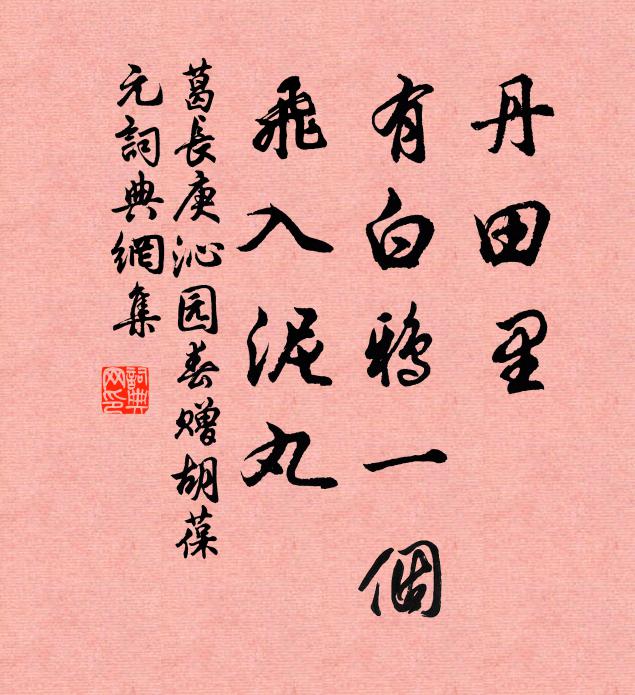 丹田里
有白鸦一個
飛入泥丸
葛長庚沁园春赠胡葆
元詞典網集
詞典網印